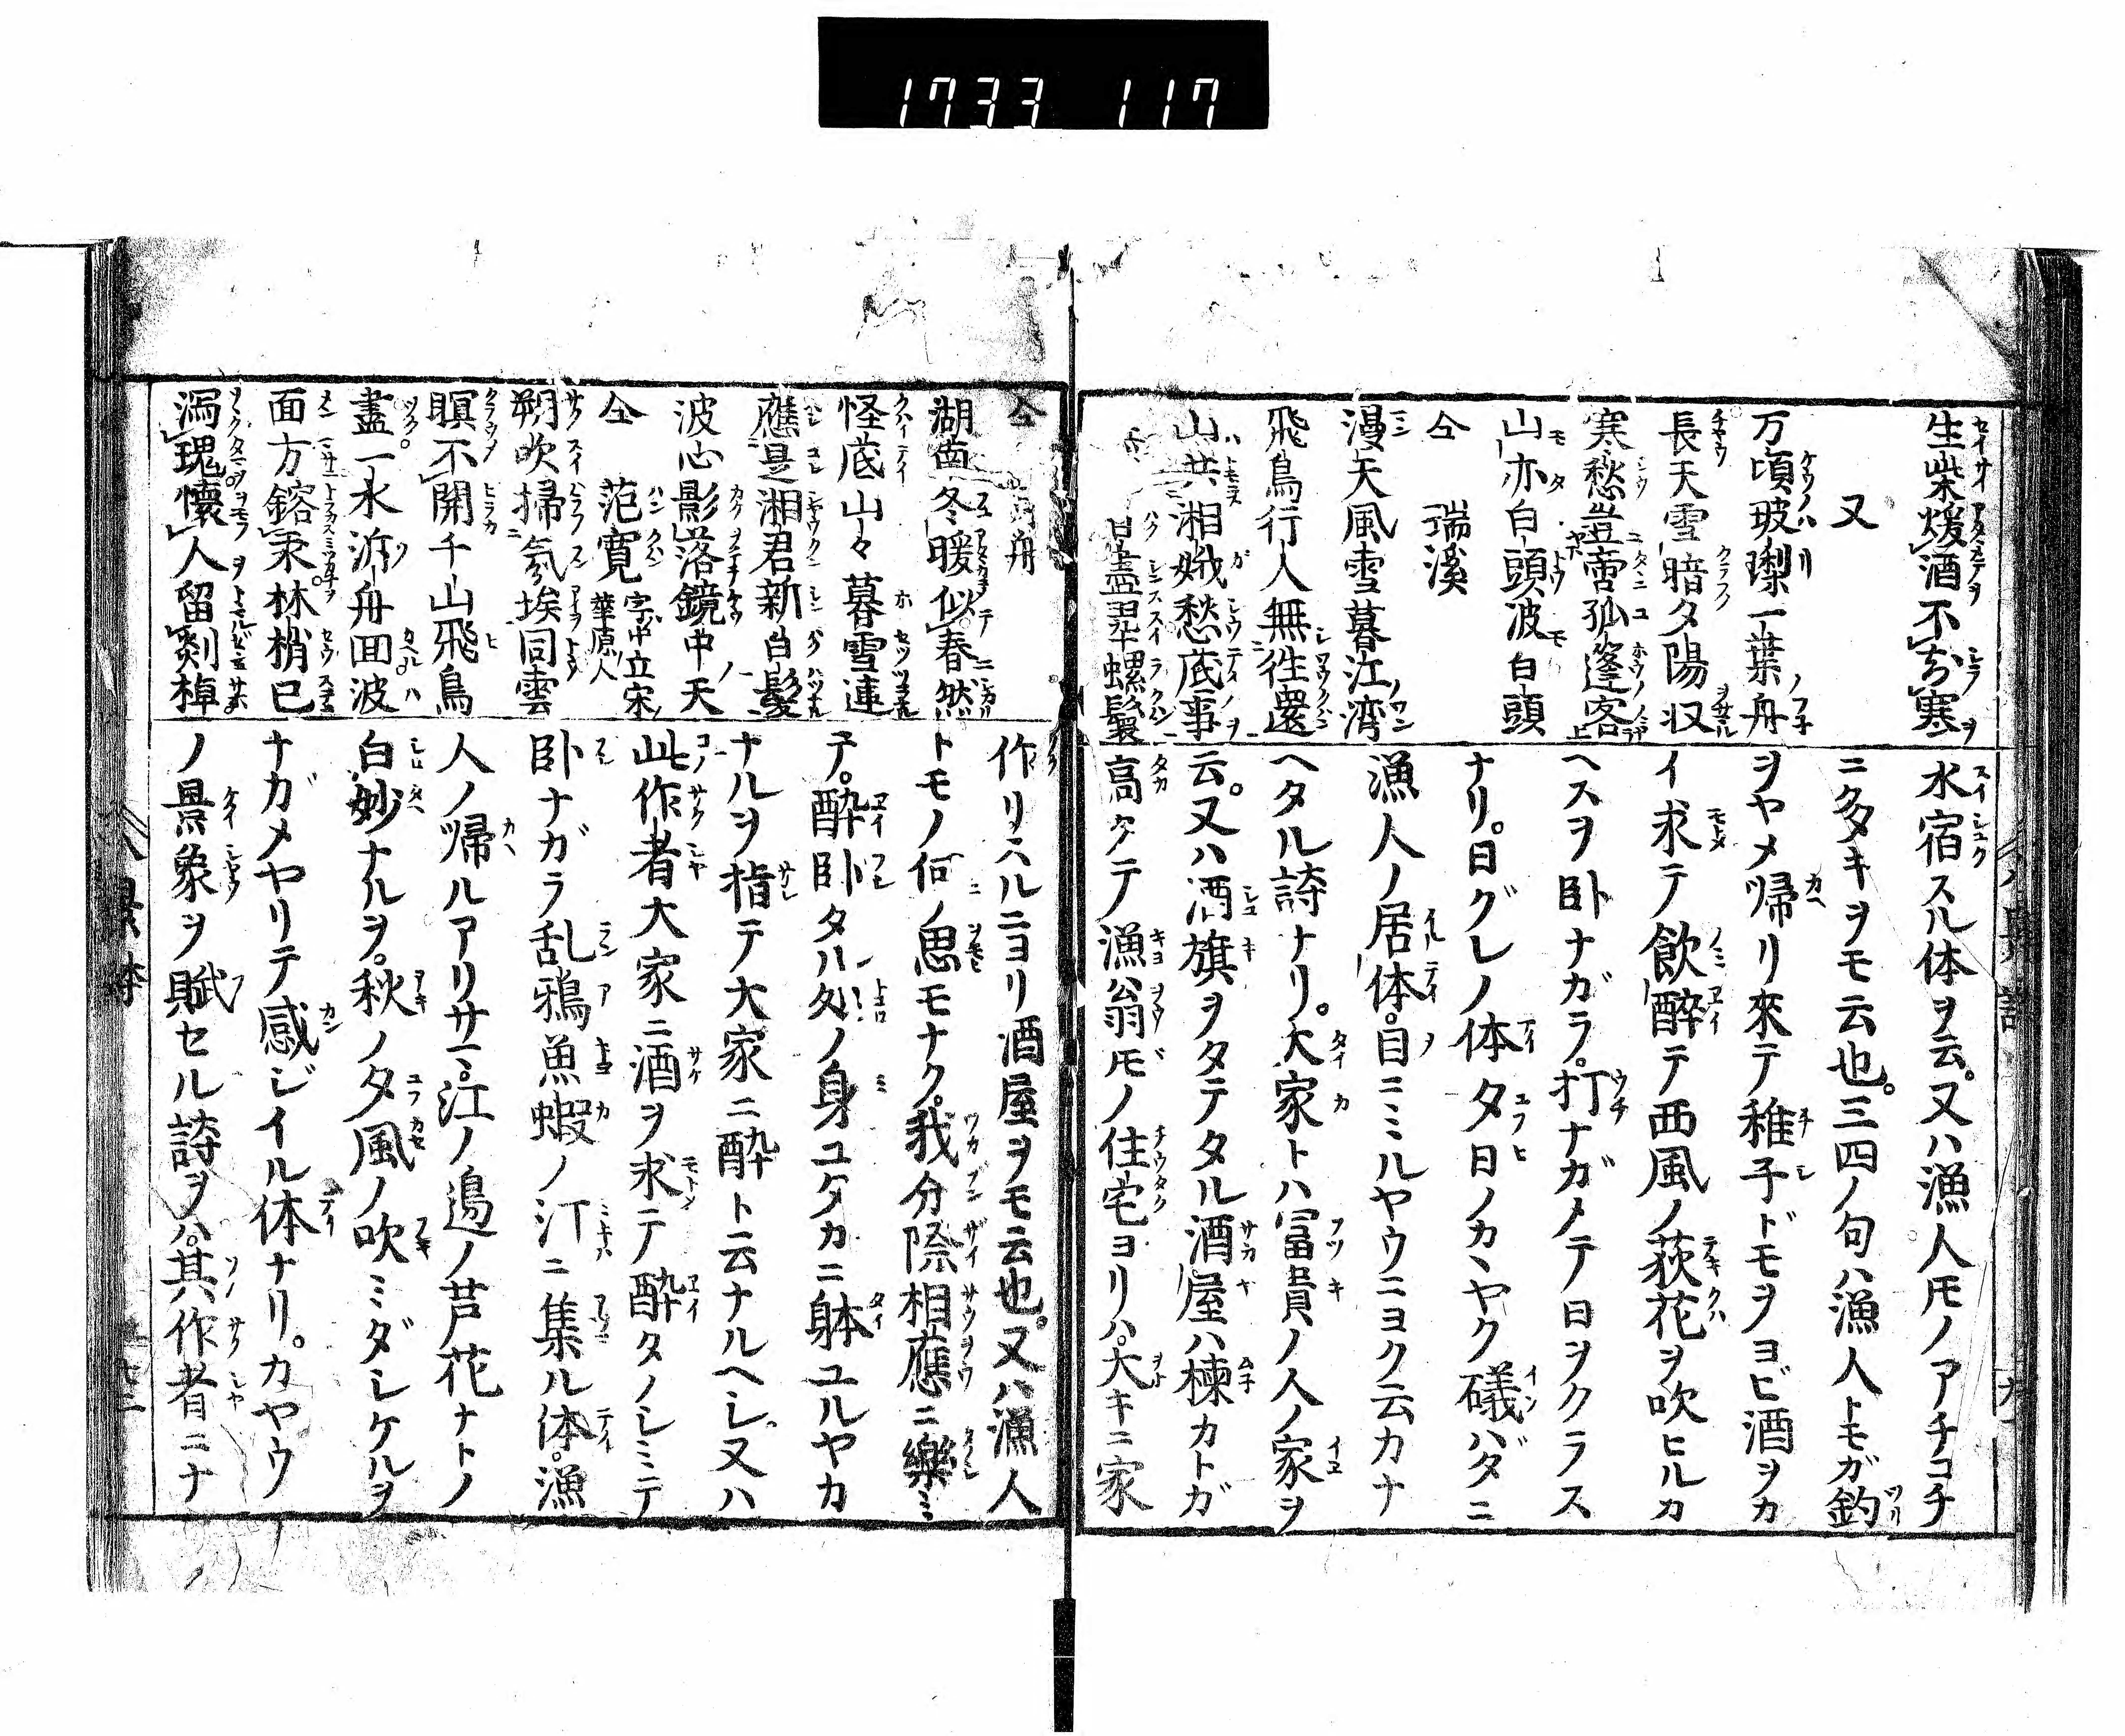 1733 117
生柴煖酒不知寒
又
万頃玻瓈一葉舟
長天雪暗夕陽収
寒愁豈啻孤篷客
山亦白頭波白頭
仝 瑞溪
漫天風雪暮江湾
飛鳥行人無往還
山共湘娥愁底事
白盡翠螺鬟
水宿スル体ヲ云。又ハ漁人𪜈ノアチコチ
ニ多キヲモ云也。三四ノ句ハ漁人トモガ釣
ヲヤメ帰リ來テ稚子ドモヲヨビ酒ヲカ
イ求テ飲醉テ西風ノ荻花ヲ吹ヒルカ
ヘスヲ卧ナガラ。打ナガメテノ日ヲクラス
ナリ。日グレノ体夕日ノカヽヤク礒ハダニ
漁人ノ居体。目ニミルヤウニヨク云カナ
ヘタル詩ナリ。大家トハ冨貴ノ人ノ家ヲ
云。又ハ酒旗ヲタテタル酒屋ハ棟カトガ
高クテ漁翁𪜈ノ住宅ヨリハ。大キニ家
仝 舟
湖南冬暖似春然
怪底山々暮雪連
應是湘君新白髮
波心影落鏡中天
仝 范寛 字中立宋華原人
朔吹掃氛埃同雲
瞑不開千山飛鳥
盡一水游舟回波
面方鎔汞林梢已
瀉瑰懷人留剡棹
作リハルニヨリ酒屋ヲモ云也。又ハ漁人
トモノ何ノ思モナク。我分際相應ニ樂ミ
テ。醉卧タル処ノ身ユタカニ躰ユルヤカ
ナルヲ指テ大家ニ醉ト云ナルヘシ。又ハ
此作者大家ニ酒ヲ求テ醉タノシミテ
卧ナガラ乱鴉魚蝦ノ汀ニ集ル体。漁
人ノ帰ルアリサマ。江ノ邉ノ芦花ナトノ
白妙ナルヲ。秋ノ夕風ノ吹ミダレケルヲ
ナガメヤリテ感ジイル体ナリ。カヤウ
ノ景象ヲ賦セル詩ヲハ。其作者ニナ